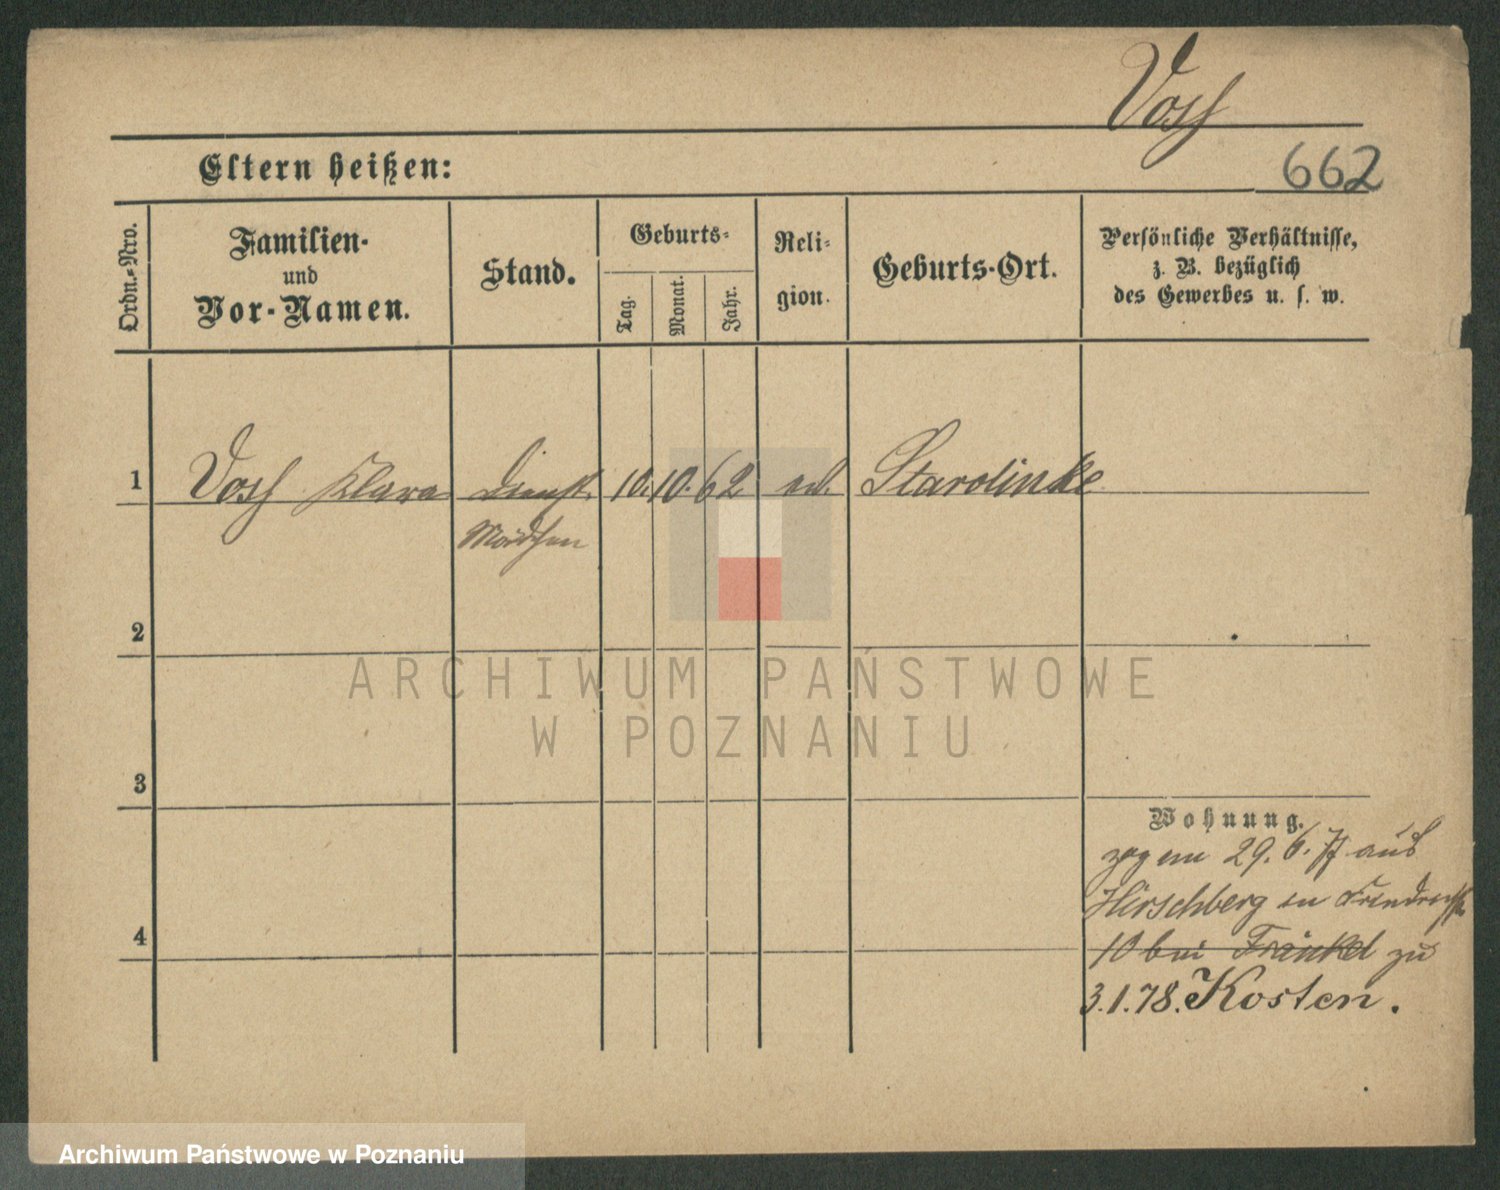 Voss
662
Eltern heißen:
Ordn.-Nro.
Familien-
und
Vor-Namen.
Stand.
Geburts-
Tag.
Monat.
Jahr.
Reli-
gion.
Geburts-Ort.
Persönliche Verhältnisse,
z. B. bezüglich
des Gewerbes u. s. w.
1 Voss Klara Dienst 10. 10. 62 Starolinke
Mädchen
2
3
4
Wohnung.
29. 6. 77 aus
Hirschberg
10 bei Fränkel zu
3.1.78. Kosten.
ARCHIWUM PAŃSTWOWE
W POZNANIU
Archiwum Państwowe w Poznaniu